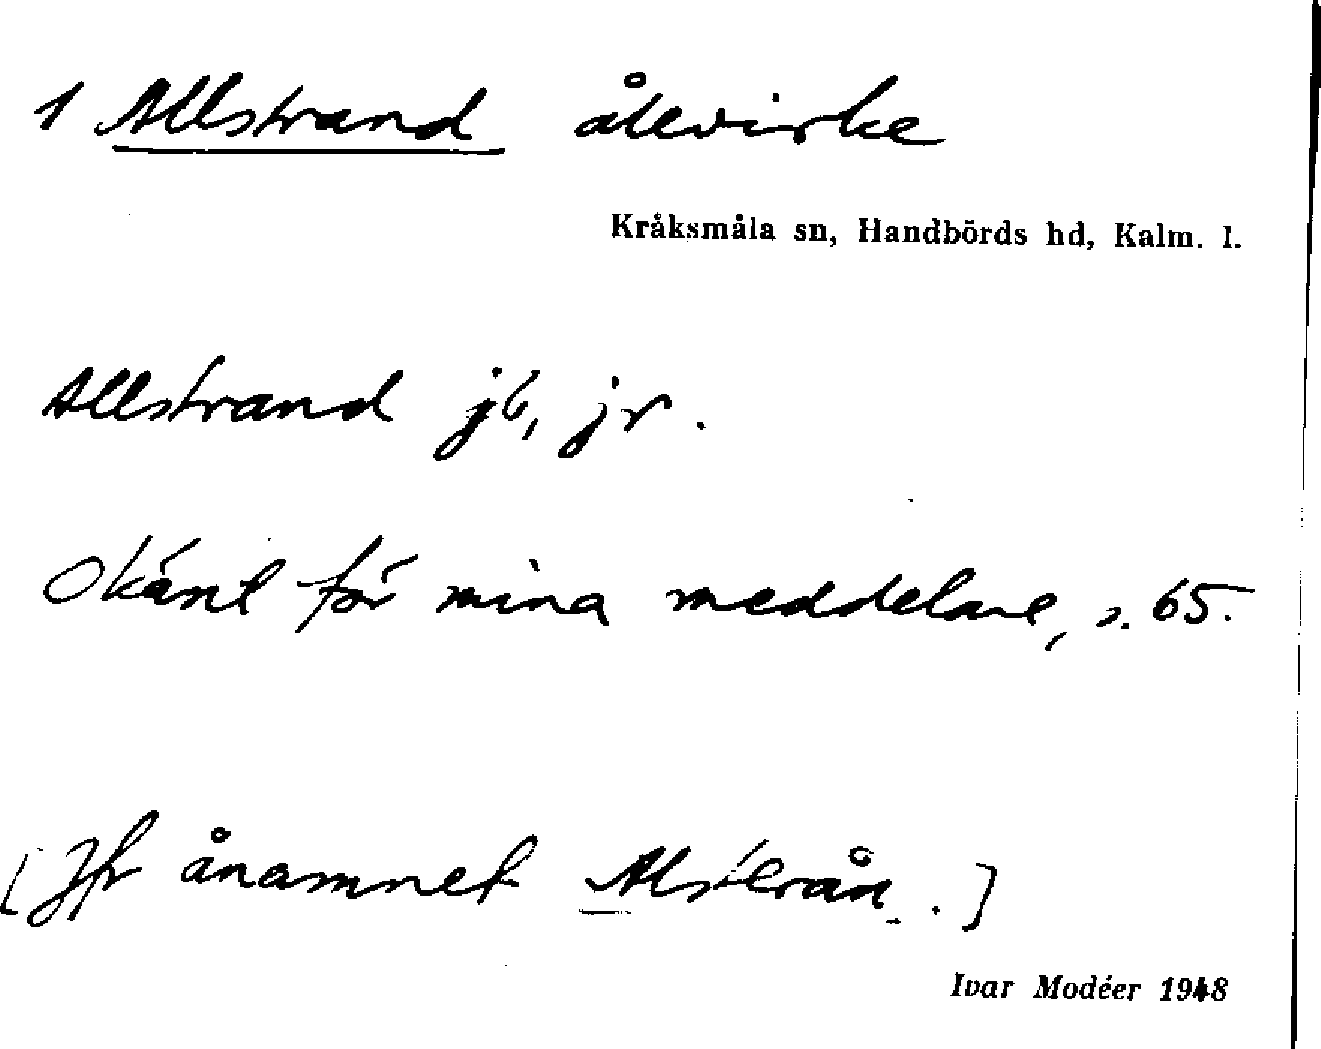 1 Allstrand ålevirke
Kråksmåla sn, Handbörds hd, Kalm. l.
Allstrand jb, jr.
Okänt för mina meddelare, s. 65.
[Jfr ånamnet Alsterån.]
Ivar Modéer 1948